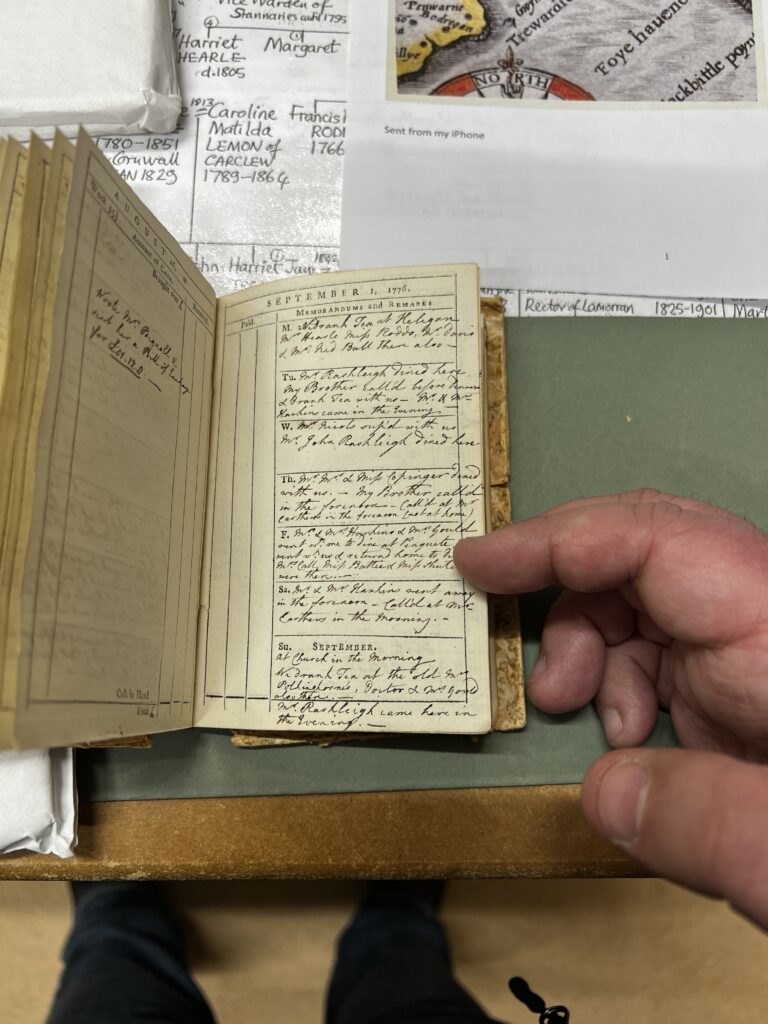 Vice Warden of
Stannaries until 1795
Harriet Margaret
HEARLE
d.1805
1913
=Caroline Francis
Matilda RODD
LEMON of 1766
CARCLEW
1789-1864
1780-1851
Cornwall
1829
Harriet Jane =
Rector of Lamorran 1825-1901
Penwarne
Bodregan
Trewarde
Foye hauen
NORTH
ackbittle point
Sent from my iPhone
1
AUGUST
Account of Cash
Brought over £
Wrote Mrs
sent her a Bill of
for £21.19.0.—
Cash in Hand
Total £
SEPTEMBER 1, 1776.
Paid. MEMORANDUMS and REMARKS.
M. Drank Tea at Heligan
Mrs Hearle Miss Rodds, Mr Davis
& Mr Ned Ball there also —
Tu. Mr Rashleigh dined here
My Brother call'd before dinner
& Drank Tea with us — Mr & Mrs
Hawkins came in the Evening.
W. Mr Nicols sup'd with us
Mr John Rashleigh dined here
Th. Mr Mrs & Miss Copinger dined
with us. — My Brother call'd
in the forenoon — Call'd at Mr
Carthews in the forenoon (not at home)
F. Mr & Mrs Hawkins & Mr Gould
went wth me to dine at Penquite
went wth us & return'd home to
Mrs Call, Miss Battie & Miss
were there.—
Sa. Mr & Mrs Hawkins went away
in the forenoon — Call'd at Mr
Carthews in the Morning. —
Su. SEPTEMBER.
at Church in the Morning
We drank Tea at the old Mrs
Polkinghornes, Doctor & Mrs Gould
also there.—
Mr Rashleigh came here in
the Evening. —